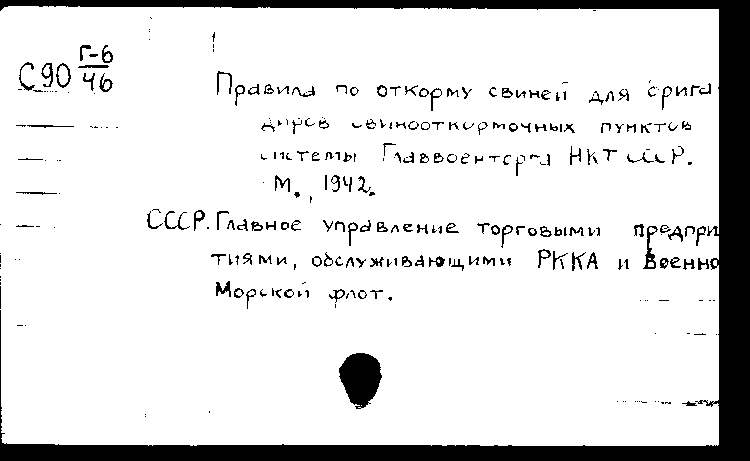 Г-6
С90 46
Правила по откорму свиней для брига-
диров свинооткормочных пунктов
системы Главвоенторга НКТ СССР.
М., 1942.
СССР. Главное управление торговыми предпри
тиями, обслуживающими РККА и Военно
Морской флот.